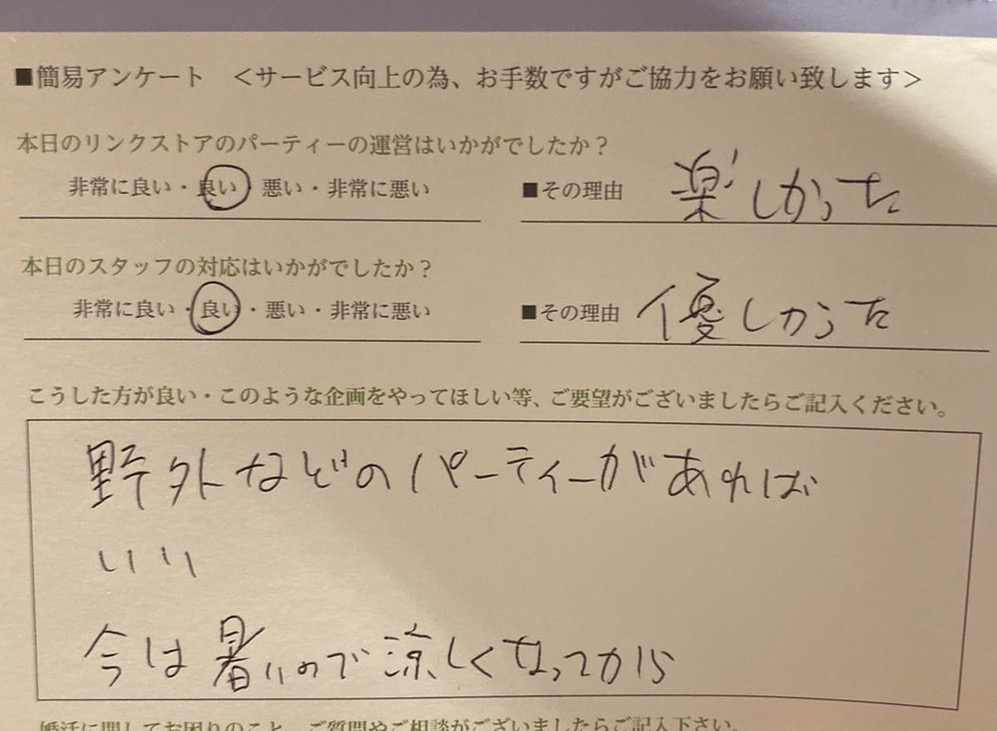 ■簡易アンケート ＜サービス向上の為、お手数ですがご協力をお願い致します＞
本日のリンクストアのパーティーの運営はいかがでしたか？
非常に良い・良い・悪い・非常に悪い ■その理由 楽しかった
本日のスタッフの対応はいかがでしたか？
非常に良い・良い・悪い・非常に悪い ■その理由 優しかった
こうした方が良い・このような企画をやってほしい等、ご要望がございましたらご記入ください。
野外などのパーティーがあれば
いい
今は暑いので涼しくなってから
婚活に関してお困りのこと、ご質問やご相談がございましたらご記入下さい。